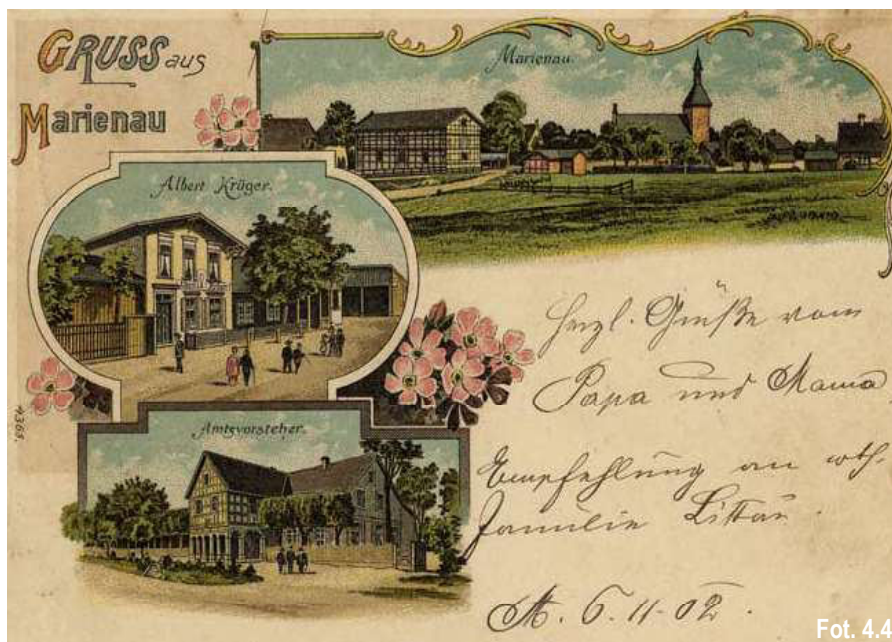 GRUSS aus
Marienau
Marienau.
Albert Krüger.
Amtsvorsteher.
4363.
Herzl. Grüße vom
Papa und Mama
Empfehlung an
Familie
M. 6.11.02.
Fot. 4.4